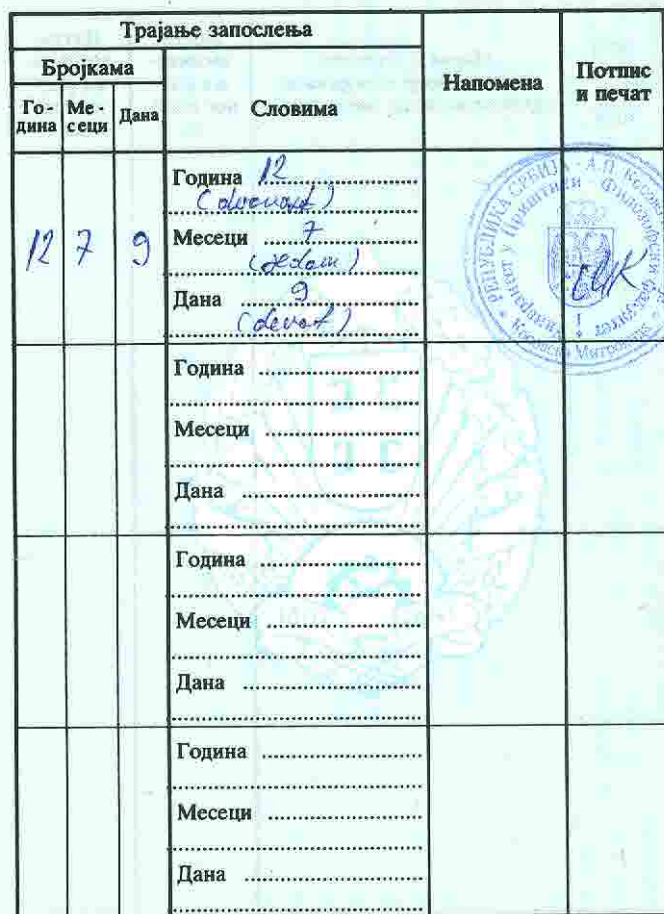 Трајање запослења
Бројкама
Словима
Напомена
Потпис
и печат
Го-
дина
Ме-
сеци
Дана
12 7 9
Година 12
(dvanaest)
Месеци 7
(sedam)
Дана 9
(devet)
РЕПУБЛИКА СРБИЈА - А.П. Косово
Универзитет у Приштини - Филозофски факултет
Косовска Митровица
Година
Месеци
Дана
Година
Месеци
Дана
Година
Месеци
Дана